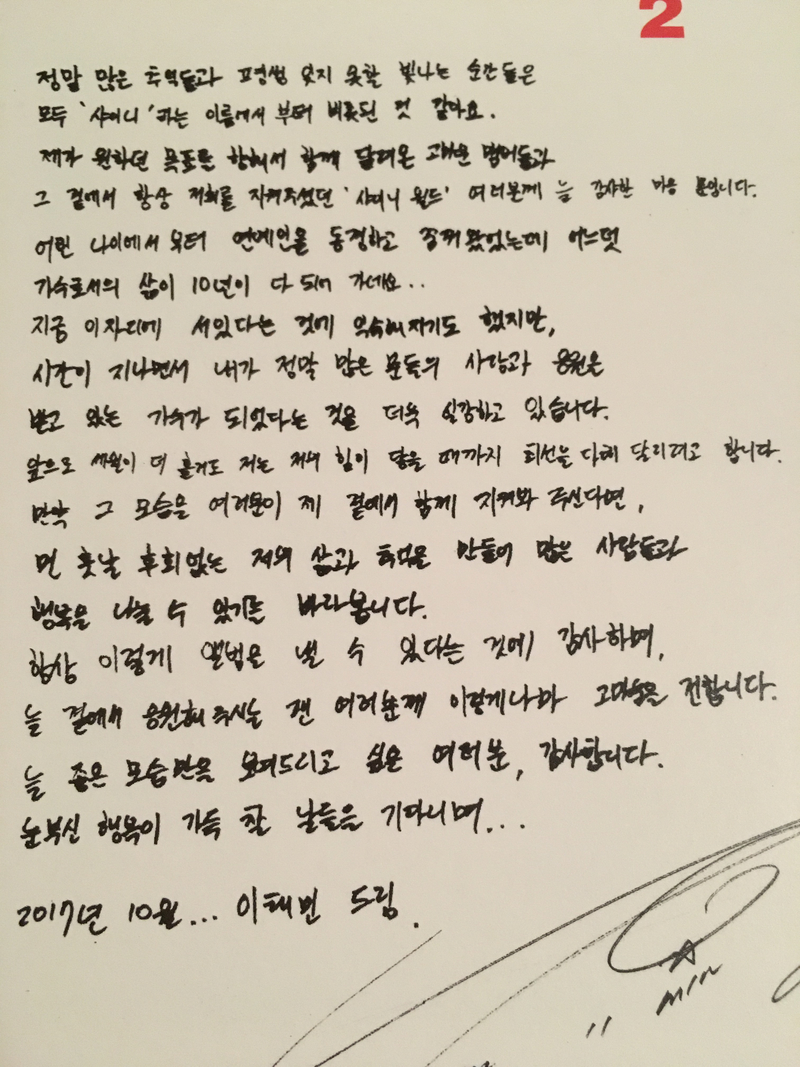 2
정말 많은 추억들과 평생 잊지 못할 빛나는 순간들은
모두 '샤이니'라는 이름에서 부터 비롯된 것 같아요.
제가 원하던 목표를 향해서 함께 달려온 고마운 멤버들과
그 곁에서 항상 저희를 지켜주셨던 '샤이니 월드' 여러분께 늘 감사한 마음 뿐입니다.
어린 나이에서 부터 연예인을 동경하고 꿈꿔 왔었는데 어느덧
가수로서의 삶이 10년이 다 되어 가네요..
지금 이 자리에 서있다는 것에 익숙해지기도 했지만,
시간이 지나면서 내가 정말 많은 분들의 사랑과 응원을
받고 있는 가수가 되었다는 것을 더욱 실감하고 있습니다.
앞으로 세월이 더 흘러도 저는 저의 힘이 닿을 때까지 최선을 다해 달리려고 합니다.
만약 그 모습을 여러분이 제 곁에서 함께 지켜봐 주신다면,
먼 훗날 후회없는 저의 삶과 추억을 만들어 많은 사람들과
행복을 나눌 수 있기를 바라봅니다.
항상 이렇게 앨범을 낼 수 있다는 것에 감사하며,
늘 곁에서 응원해 주시는 팬 여러분께 이렇게나마 고마움을 전합니다.
늘 좋은 모습만을 보여드리고 싶은 여러분, 감사합니다.
눈부신 행복이 가득 찰 날들을 기다리며...
2017년 10월... 이태민 드림.
MIN